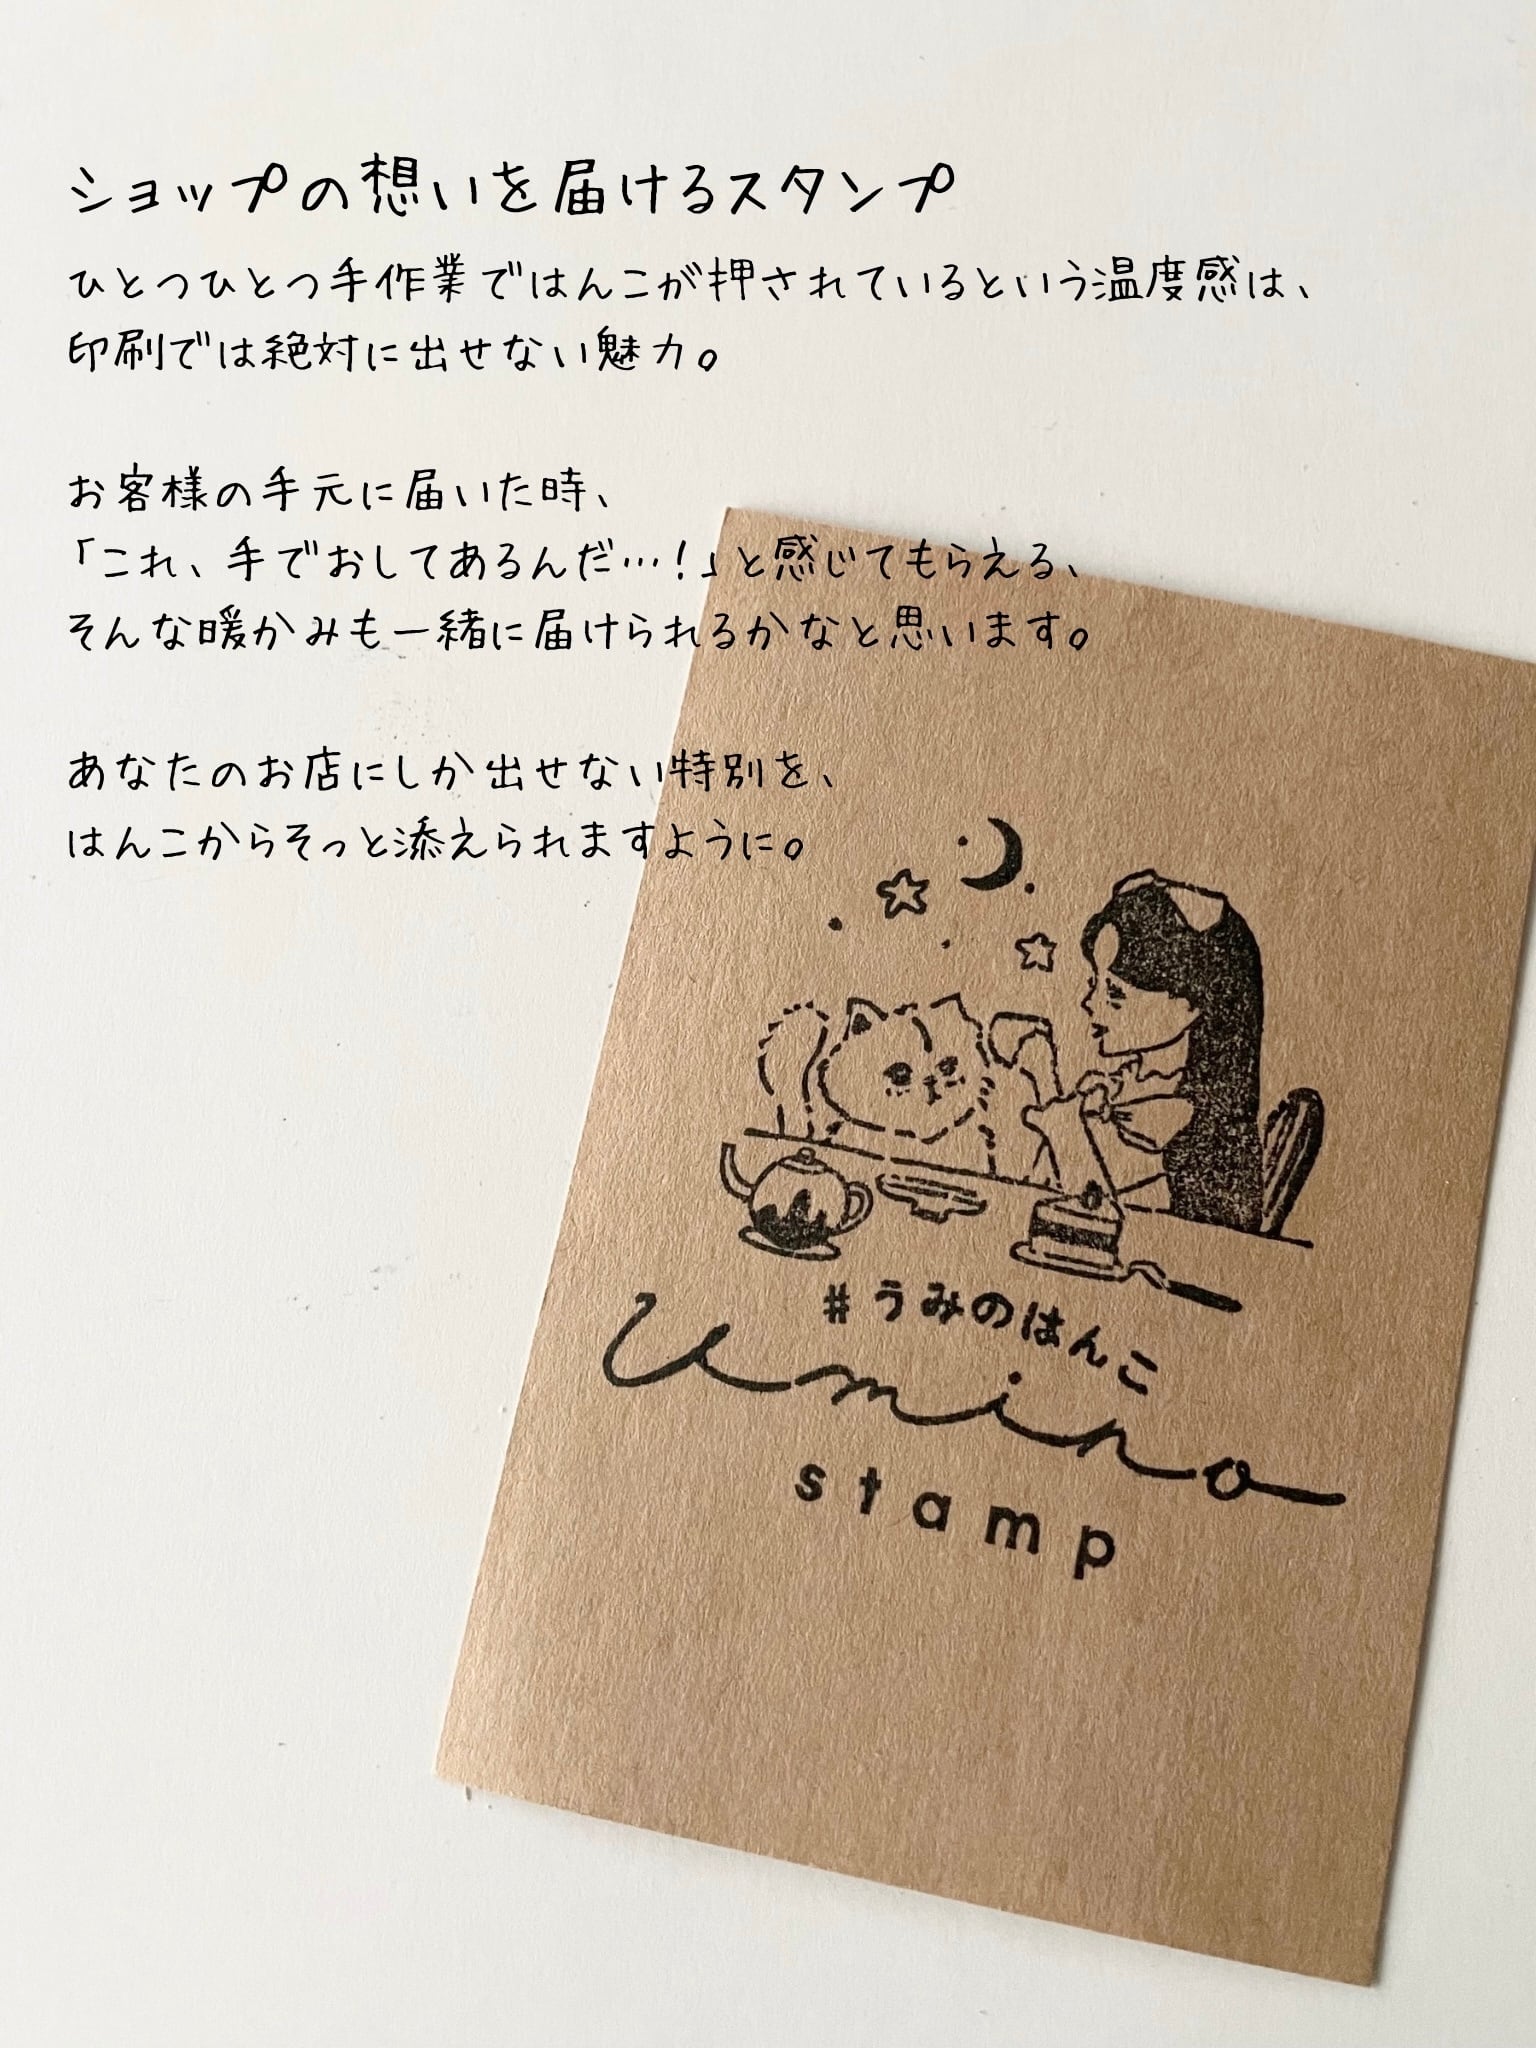 ショップの想いを届けるスタンプ
ひとつひとつ手作業ではんこが押されているという温度感は、
印刷では絶対に出せない魅力。
お客様の手元に届いた時、
「これ、手でおしてあるんだ…！」と感じてもらえる、
そんな暖かみも一緒に届けられるかなと思います。
あなたのお店にしか出せない特別を、
はんこからそっと添えられますように。
#うみのはんこ
Umino
stamp